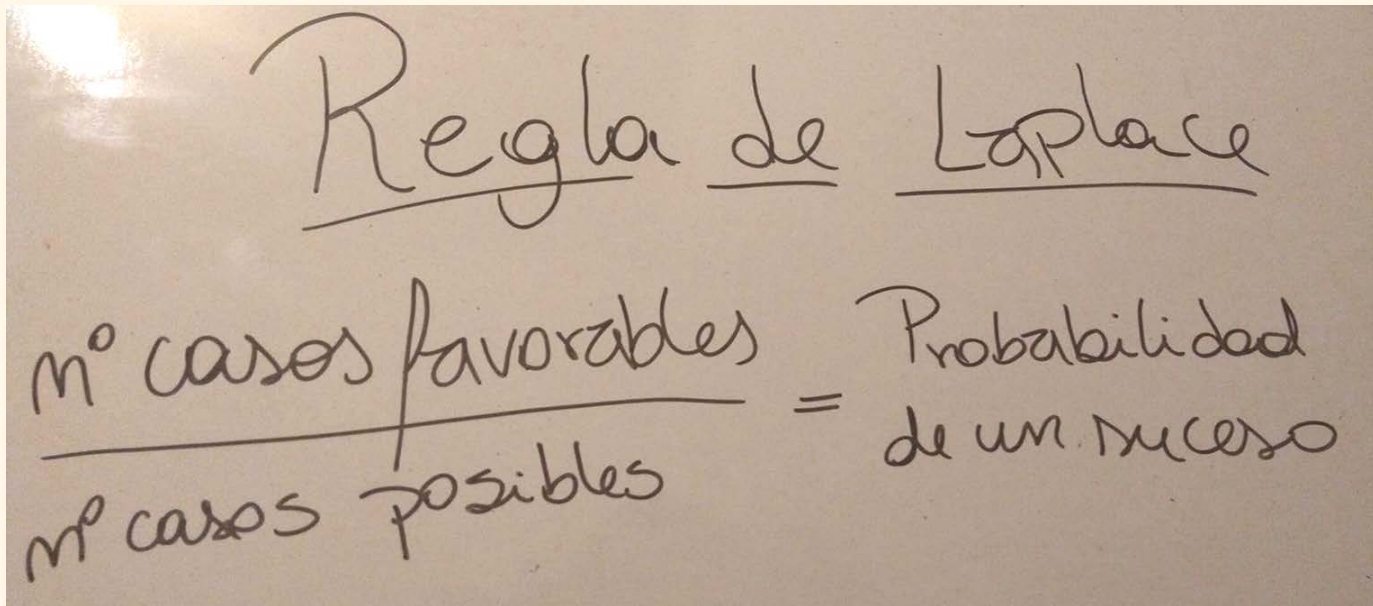 Regla de Laplace
nº casos favorables
nº casos posibles
= Probabilidad
de un suceso